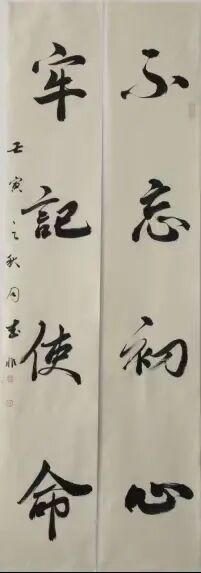 不忘初心
牢記使命
壬寅之秋